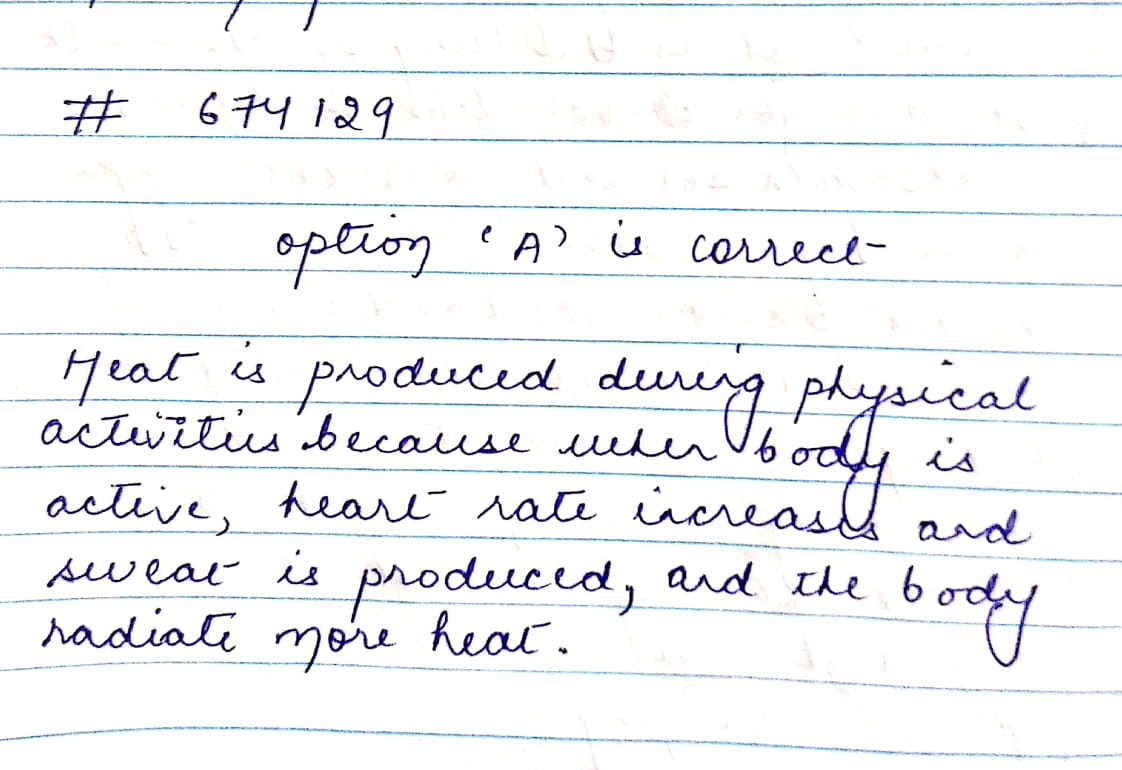 # 674129
option 'A' is correct
Heat is produced during physical
activities because when body is
active, heart rate increases and
sweat is produced, and the body
radiate more heat.